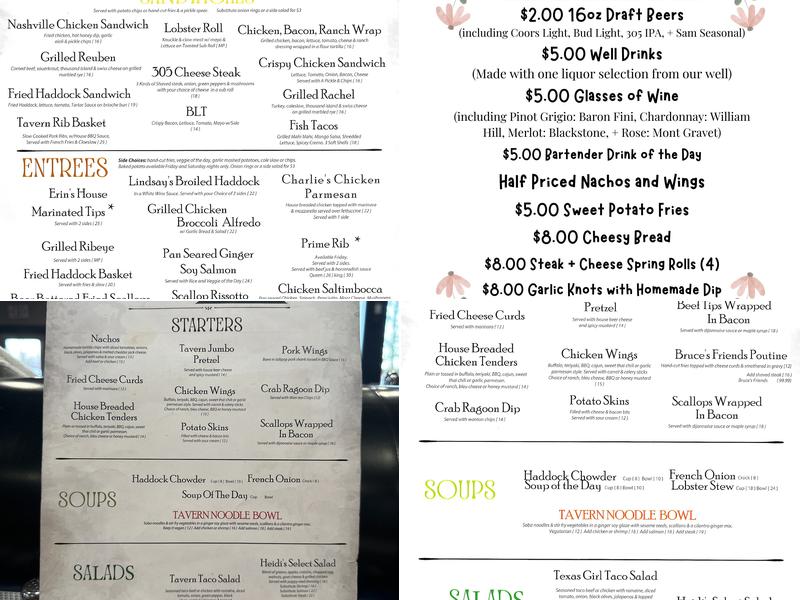 SANDWICHES
Served with potato chips or hand-cut fries & a pickle spear. Substitute onion rings or a side salad for $3
Nashville Chicken Sandwich
Fried chicken, hot honey dip, garlic
aioli & pickle chips ( 16 )
Grilled Reuben
Corned beef, sauerkraut, thousand island & swiss cheese on grilled
marbled rye ( 16 )
Fried Haddock Sandwich
Fried Haddock, lettuce, tomato, Tartar Sauce on brioche bun ( 19 )
Tavern Rib Basket
Slow Cooked Pork Ribs, w/House BBQ Sauce,
Served with French Fries & Coleslaw ( 25 )
Lobster Roll
Knuckle & claw meat w/ mayo &
Lettuce on Toasted Sub Roll ( MP )
305 Cheese Steak
3 Kinds of Shaved steak, onion, green peppers & mushrooms
with your choice of cheese in a sub roll
(18 )
BLT
Crispy Bacon, Lettuce, Tomato, Mayo w/Side
( 14 )
Chicken, Bacon, Ranch Wrap
Grilled chicken, bacon, lettuce, tomato, cheese & ranch
dressing wrapped in a flour tortilla ( 16 )
Crispy Chicken Sandwich
Lettuce, Tomato, Onion, Bacon, Cheese
Served with A Pickle & Chips ( 16 )
Grilled Rachel
Turkey, coleslaw, thousand island & swiss cheese
on grilled marbled rye ( 16 )
Fish Tacos
Grilled Mahi Mahi, Mango Salsa, Shredded
Lettuce, Spicy Crema, 3 Soft Shells ( 18 )
ENTREES
Side Choices: hand-cut fries, veggie of the day, garlic mashed potatoes, cole slaw or chips.
Baked potatoes available Friday and Saturday nights only. Onion rings or side salad for $3
Erin's House
Marinated Tips *
Served with 2 sides ( 25 )
Grilled Ribeye
Served with 2 sides ( MP )
Fried Haddock Basket
Served with fries & slaw ( 20 )
Lindsay's Broiled Haddock
In a White Wine Sauce. Served with your Choice of 2 sides ( 22 )
Grilled Chicken
Broccoli Alfredo
w/ Garlic Bread & Salad ( 22 )
Pan Seared Ginger
Soy Salmon
Served with Rice and Veggie of the Day ( 24 )
Scallop Rissotto
Charlie's Chicken
Parmesan
House breaded chicken topped with marinara
& mozzarella served over fettuccine ( 22 )
Served with 1 side
Prime Rib *
Available Friday,
Served with 2 sides.
Served with beef jus & horseradish sauce
Queen ( 26 ) king ( 30 )
Chicken Saltimbocca
$2.00 16oz Draft Beers
(including Coors Light, Bud Light, 305 IPA, + Sam Seasonal)
$5.00 Well Drinks
(Made with one liquor selection from our well)
$5.00 Glasses of Wine
(including Pinot Grigio: Baron Fini, Chardonnay: William
Hill, Merlot: Blackstone, + Rose: Mont Gravet)
$5.00 Bartender Drink of the Day
Half Priced Nachos and Wings
$5.00 Sweet Potato Fries
$8.00 Cheesy Bread
$8.00 Steak + Cheese Spring Rolls (4)
$8.00 Garlic Knots with Homemade Dip
STARTERS
Nachos
Fried Cheese Curds
Served with marinara ( 12 )
House Breaded
Chicken Tenders
Tavern Jumbo
Pretzel
Served with house beer cheese
and spicy mustard ( 14 )
Chicken Wings
Potato Skins
Filled with cheese & bacon bits
Served with sour cream ( 12 )
Pork Wings
Crab Ragoon Dip
Served with Wonton Chips (12)
Scallops Wrapped
In Bacon
Served with dijonnaise sauce or maple syrup ( 18 )
SOUPS
Haddock Chowder Cup ( 8 ) Bowl ( 10 ) French Onion Crock ( 8 )
Soup Of The Day Cup Bowl
TAVERN NOODLE BOWL
Soba noodles & stir fry vegetables in a ginger soy glaze with sesame seeds, scallions & a cilantro ginger mix.
Keep it vegan ( 12 ) Add chicken or shrimp ( 16 ) Add salmon ( 18 ) Add steak ( 19 )
SALADS
Tavern Taco Salad
Heidi's Select Salad
Fried Cheese Curds
Served with marinara ( 12 )
House Breaded
Chicken Tenders
Plain or tossed in buffalo, teriyaki, BBQ, cajun, sweet
thai chili or garlic parmesan.
Choice of ranch, bleu cheese or honey mustard ( 14 )
Crab Ragoon Dip
Served with wonton chips ( 14 )
Pretzel
Served with house beer cheese
and spicy mustard ( 14 )
Chicken Wings
Buffalo, teriyaki, BBQ, cajun, sweet thai chili or garlic
parmesan style. Served with carrot & celery sticks
Choice of ranch, bleu cheese or honey mustard
( 15 )
Potato Skins
Filled with cheese & bacon bits
Served with sour cream ( 12 )
Beef Tips Wrapped
In Bacon
Served with dijonnaise sauce or maple syrup ( 18 )
Bruce's Friends Poutine
Hand-cut fries topped with cheese curds & smothered in gravy (12)
Add shaved steak ( 16 )
Bruce's Friends (99.99)
Scallops Wrapped
In Bacon
Served with dijonnaise sauce or maple syrup ( 18 )
SOUPS
Haddock Chowder Cup ( 8 ) Bowl ( 10 ) French Onion Crock ( 8 )
Soup of the Day Cup ( 8 ) Bowl ( 10 ) Lobster Stew Cup ( 18 ) Bowl ( 24 )
TAVERN NOODLE BOWL
Soba noodles & stir fry vegetables in a ginger soy glaze with sesame seeds, scallions & a cilantro ginger mix.
Vegetarian ( 12 ) Add chicken or shrimp ( 16 ) Add salmon ( 18 ) Add steak ( 19 )
SALADS
Texas Girl Taco Salad
Seasoned taco beef or chicken w/ romaine, diced
tomato, onion, black olives, jalapenos & topped